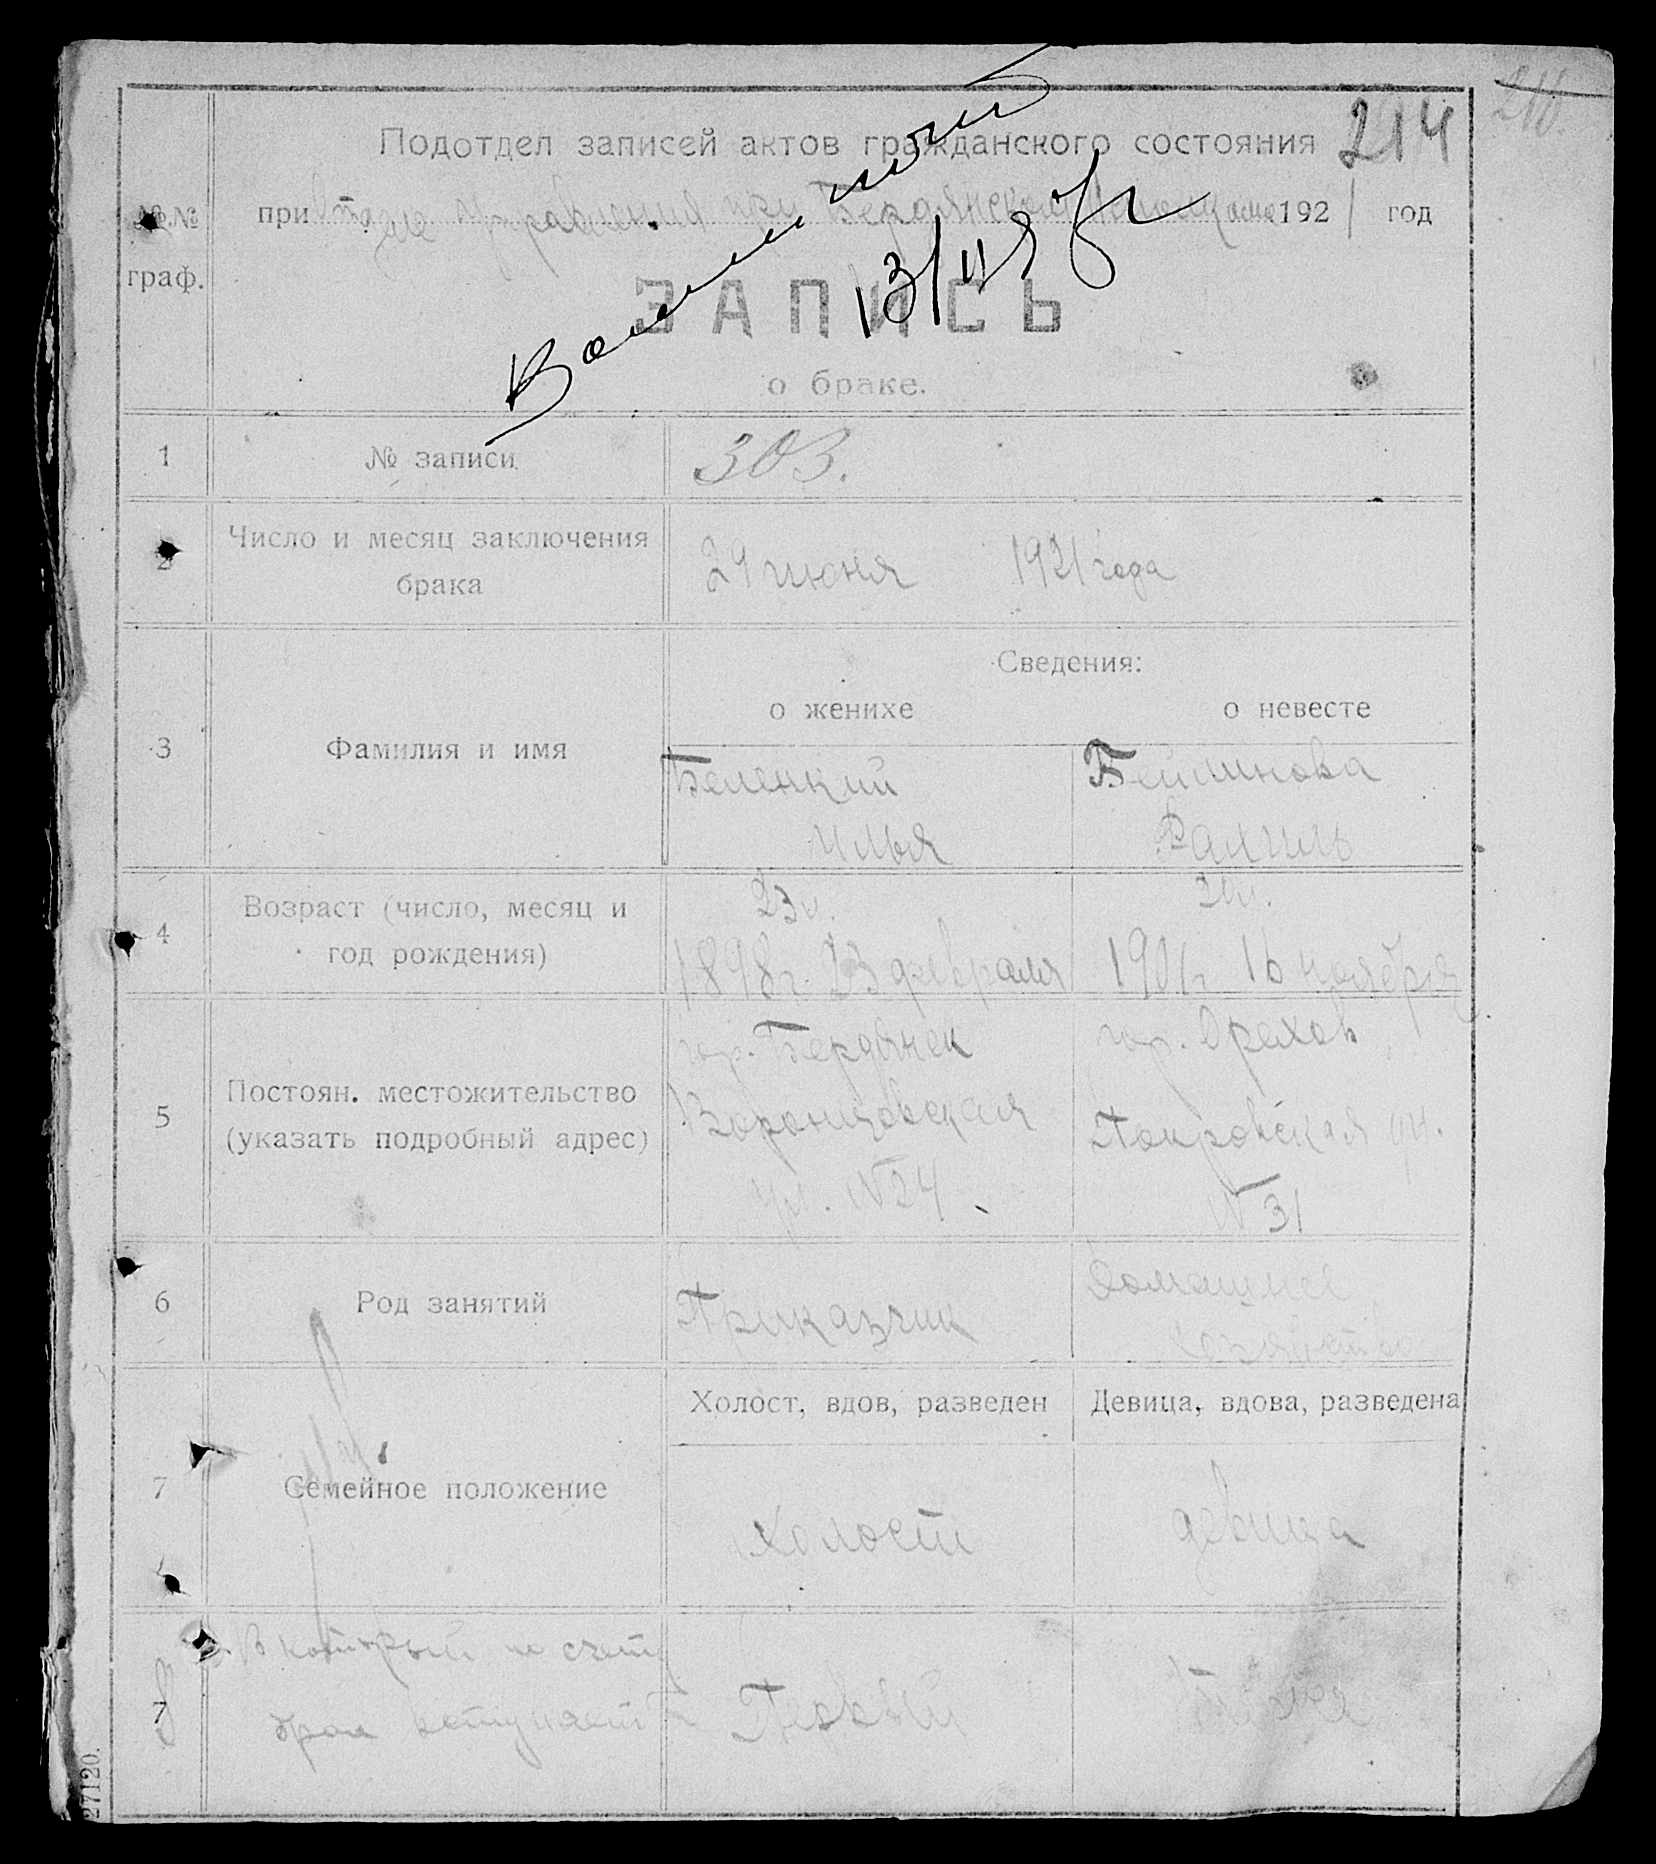 210.
Подотдел записей актов гражданского состояния 214
№№ при Отделе Управления при Бердянском 1921 год
граф.
13/II
ЗАПИСЬ
о браке.
1 № записи 303.
2 Число и месяц заключения
брака
29 июня 1921 года
Сведения:
о женихе о невесте
3 Фамилия и имя
Беленкий Бейлинова
Илья Рахиль
4 Возраст (число, месяц и
год рождения)
23 л. 20 л.
1898 г. 23 февраля 1901 г 16 ноября
5 Постоян. местожительство
(указать подробный адрес)
гор. Бердянск гор. Орехов
Воронцовская Покровская ул.
ул. №24 № 31
6 Род занятий
Приказчик Домашнее
хозяйство
Холост, вдов, разведен Девица, вдова, разведена
7 Семейное положение
Холост девица
8 В который по счету
брак вступает Первый
27120.